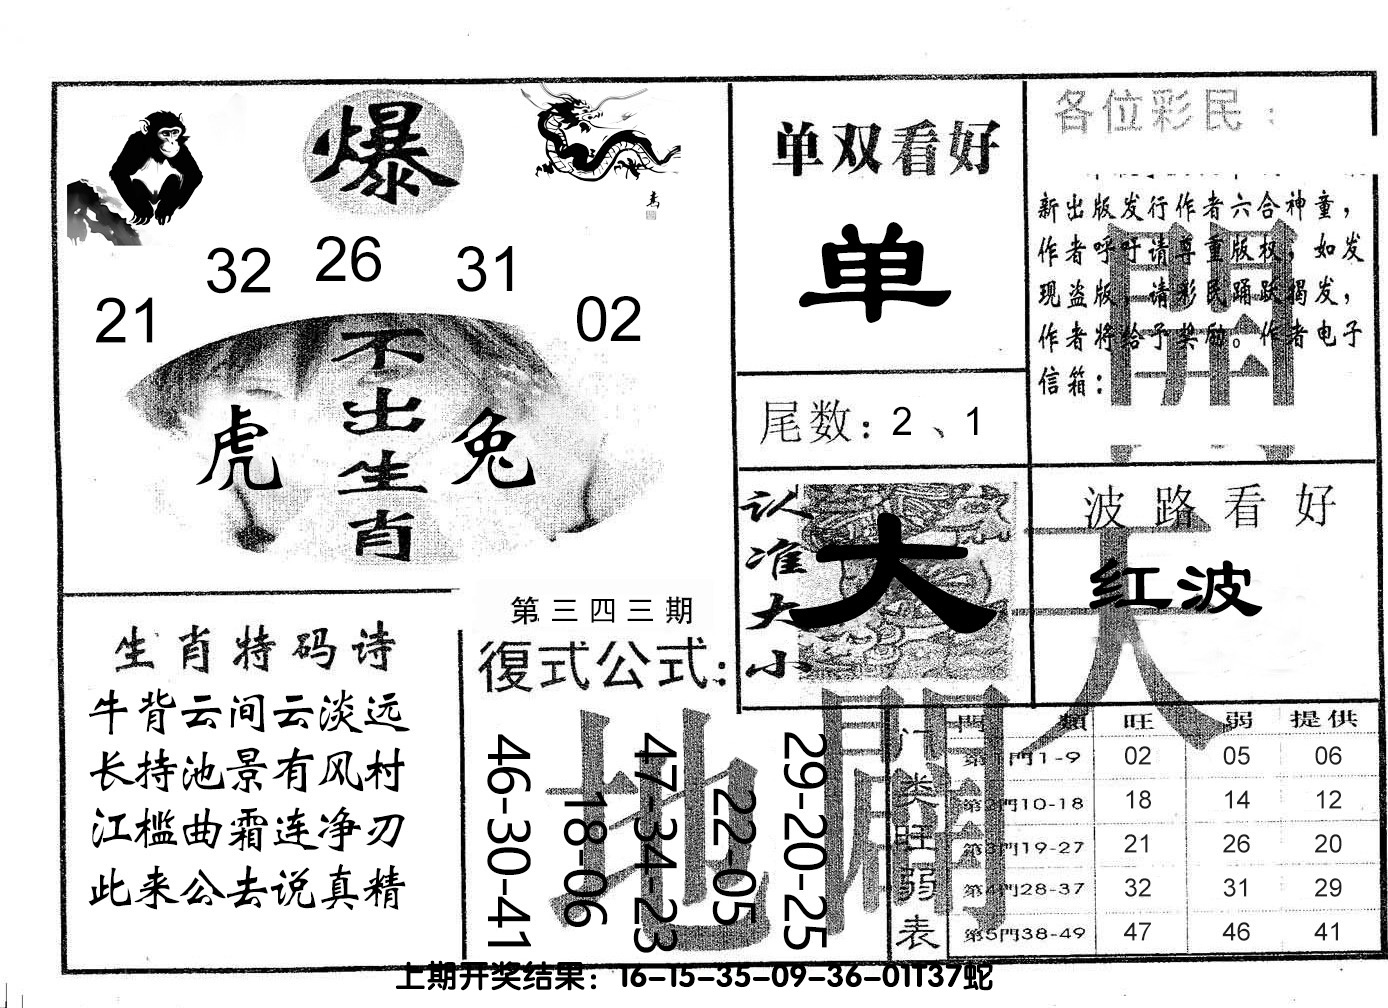 爆
32 26 31
21 02
不出生肖
虎 兔
单双看好
单
尾数：2、1
各位彩民：
新出版发行作者六合神童，
作者呼吁请尊重版权，如发
现盗版，请彩民踊跃揭发，
作者将给予奖励。作者电子
信箱：
認准大小
大
波路看好
红波
開天
闢地
生肖特码诗
牛背云间云淡远
长持池景有风村
江槛曲霜连净刃
此来公去说真精
第三四三期
復式公式：
46-30-41
18-06
47-34-23
22-05
29-20-25
门类旺弱表
門類 旺 弱 提供
第1門1-9 02 05 06
第2門10-18 18 14 12
第3門19-27 21 26 20
第4門28-37 32 31 29
第5門38-49 47 46 41
上期开奖结果：16-15-35-09-36-01T37蛇